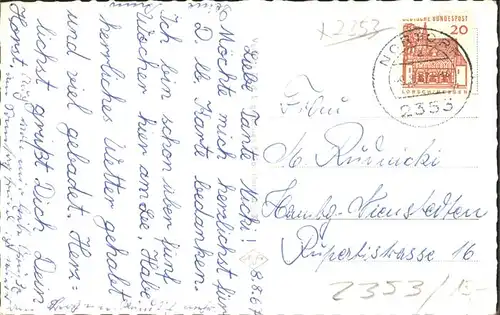 x2353
DEUTSCHE BUNDESPOST
20
NORTORF
2353
8.8.67
Liebe Tante Micki!
Möchte mich herzlichst für
D. lb Karte bedanken.
Ich bin schon über fünf
Wochen hier am See, habe
herrliches Wetter gehabt
und viel gebadet. Herz=
lichst grüßt Dich Dein
Horst
Frau
M. Rudnicki
Hambg-Nienstedten
Rupertistrasse 16
2353/